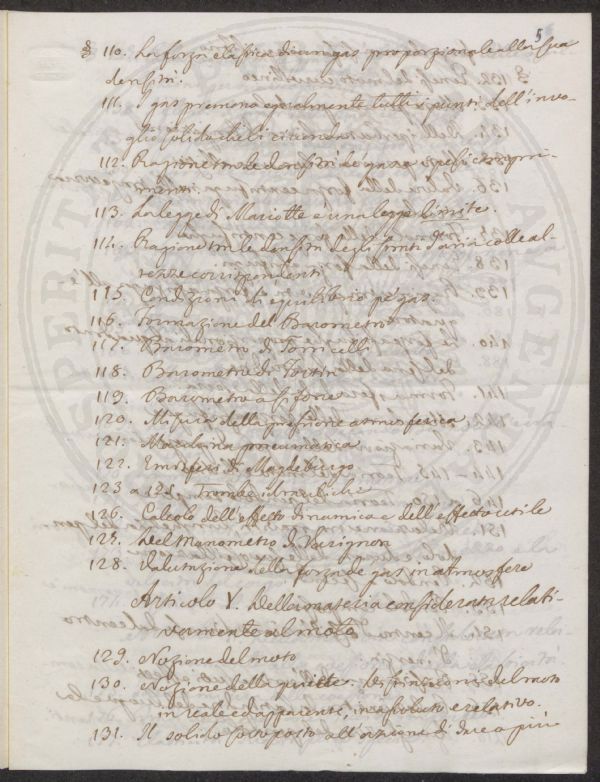 5
§ 110. La forza elastica di un gas proporzionale alla sua
densità.
111. I gas premono egualmente tutti i punti dell'invo-
glio solido che li circonda.
112. Ragione tra le densità de' gas e pesi
113. La legge di Mariotte è una legge limite.
114. Ragione tra le densità degli strati d'aria colle al-
tezze corrispondenti
115. Condizioni di equilibrio pe' gas.
116. Formazione del Barometro
117. Barometro di Torricelli
118. Barometro di Fortin
119. Barometro a sifone
120. Misura della pressione atmosferica
121. Macchina pneumatica
122. Emisferi di Magdeburgo
123 a 125. Trombe idrauliche
126. Calcolo dell'effetto dinamico e dell'effetto utile
125. Del Manometro di Varignon
128. Valutazione della forza de' gas in atmosfere
Articolo V. Della materia considerata relati-
vamente al moto
129. Nozione del moto
130. Nozione della quiete. Distinzione del moto
in reale ed apparente, in assoluto e relativo.
131. Il solido sottoposto all'azione di due o più